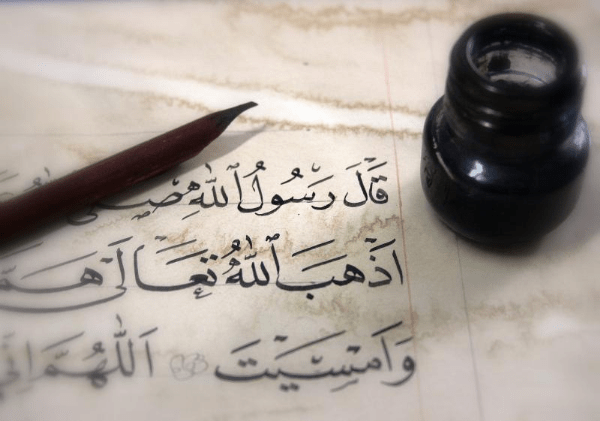 قَالَ رَسُولُ ٱللّٰهِ صَلَّى
اَذْهَبَ ٱللّٰهُ تَعَالَى هَمَّ
وَاَمْسَيْتَ اَللّٰهُمَّ اِنِّي